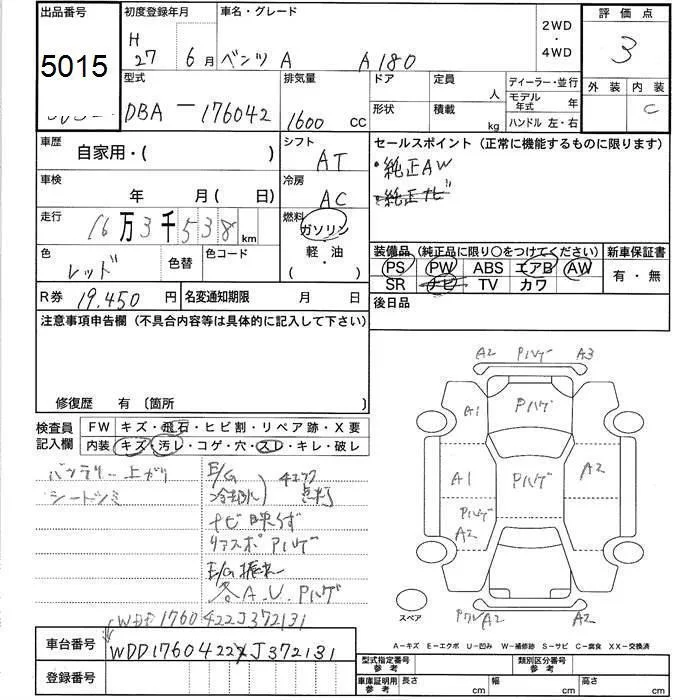 出品番号 初度登録年月 車名・グレード 2WD・4WD 評価点
5015 H27 6月 ベンツ A A180 3
型式 排気量 ドア 定員 人 ディーラー・並行 外装 内装
DBA-176042 1600 cc 形状 積載 kg モデル年式 年 C
ハンドル 左・右
車歴 自家用・( ) シフト AT セールスポイント(正常に機能するものに限ります)
・純正AW
車検 年 月(日) 冷房 AC ・純正ナビ
走行 16万3千538km 燃料 ガソリン 軽・油 ( )
色 レッド 色替 色コード
装備品(純正品に限り○をつけてください) 新車保証書
PS PW ABS エアB AW 有・無
SR ナビ TV カワ
R券 19,450円 名変通期限 月 日 後日品
注意事項申告欄(不具合内容等は具体的に記入して下さい)
修復歴 有 〔箇所
検査員記入欄 FW キズ・飛石・ヒビ割・リペア跡・X要
内装 キズ・汚レ・コゲ・穴・スレ・キレ・破レ
バッテリー上がり
シートシミ
E/G
冷却水
点灯
ナビ映らず
リアスポPハゲ
E/G振れ
各A.U.Pハゲ
WDD1760422J372131
車台番号 WDD1760422XJ372131
登録番号
A2 Pハゲ A3
A1 Pハゲ
A1 Pハゲ A2
Pハゲ
A2
A2 A2
スペア
A-キズ E-エクボ U-凹み W-補修跡 S-サビ C-腐食 XX-交換済
型式指定番号 参考 類別区分番号 参考
車庫証明用 参考 長さ cm 幅 cm 高さ cm